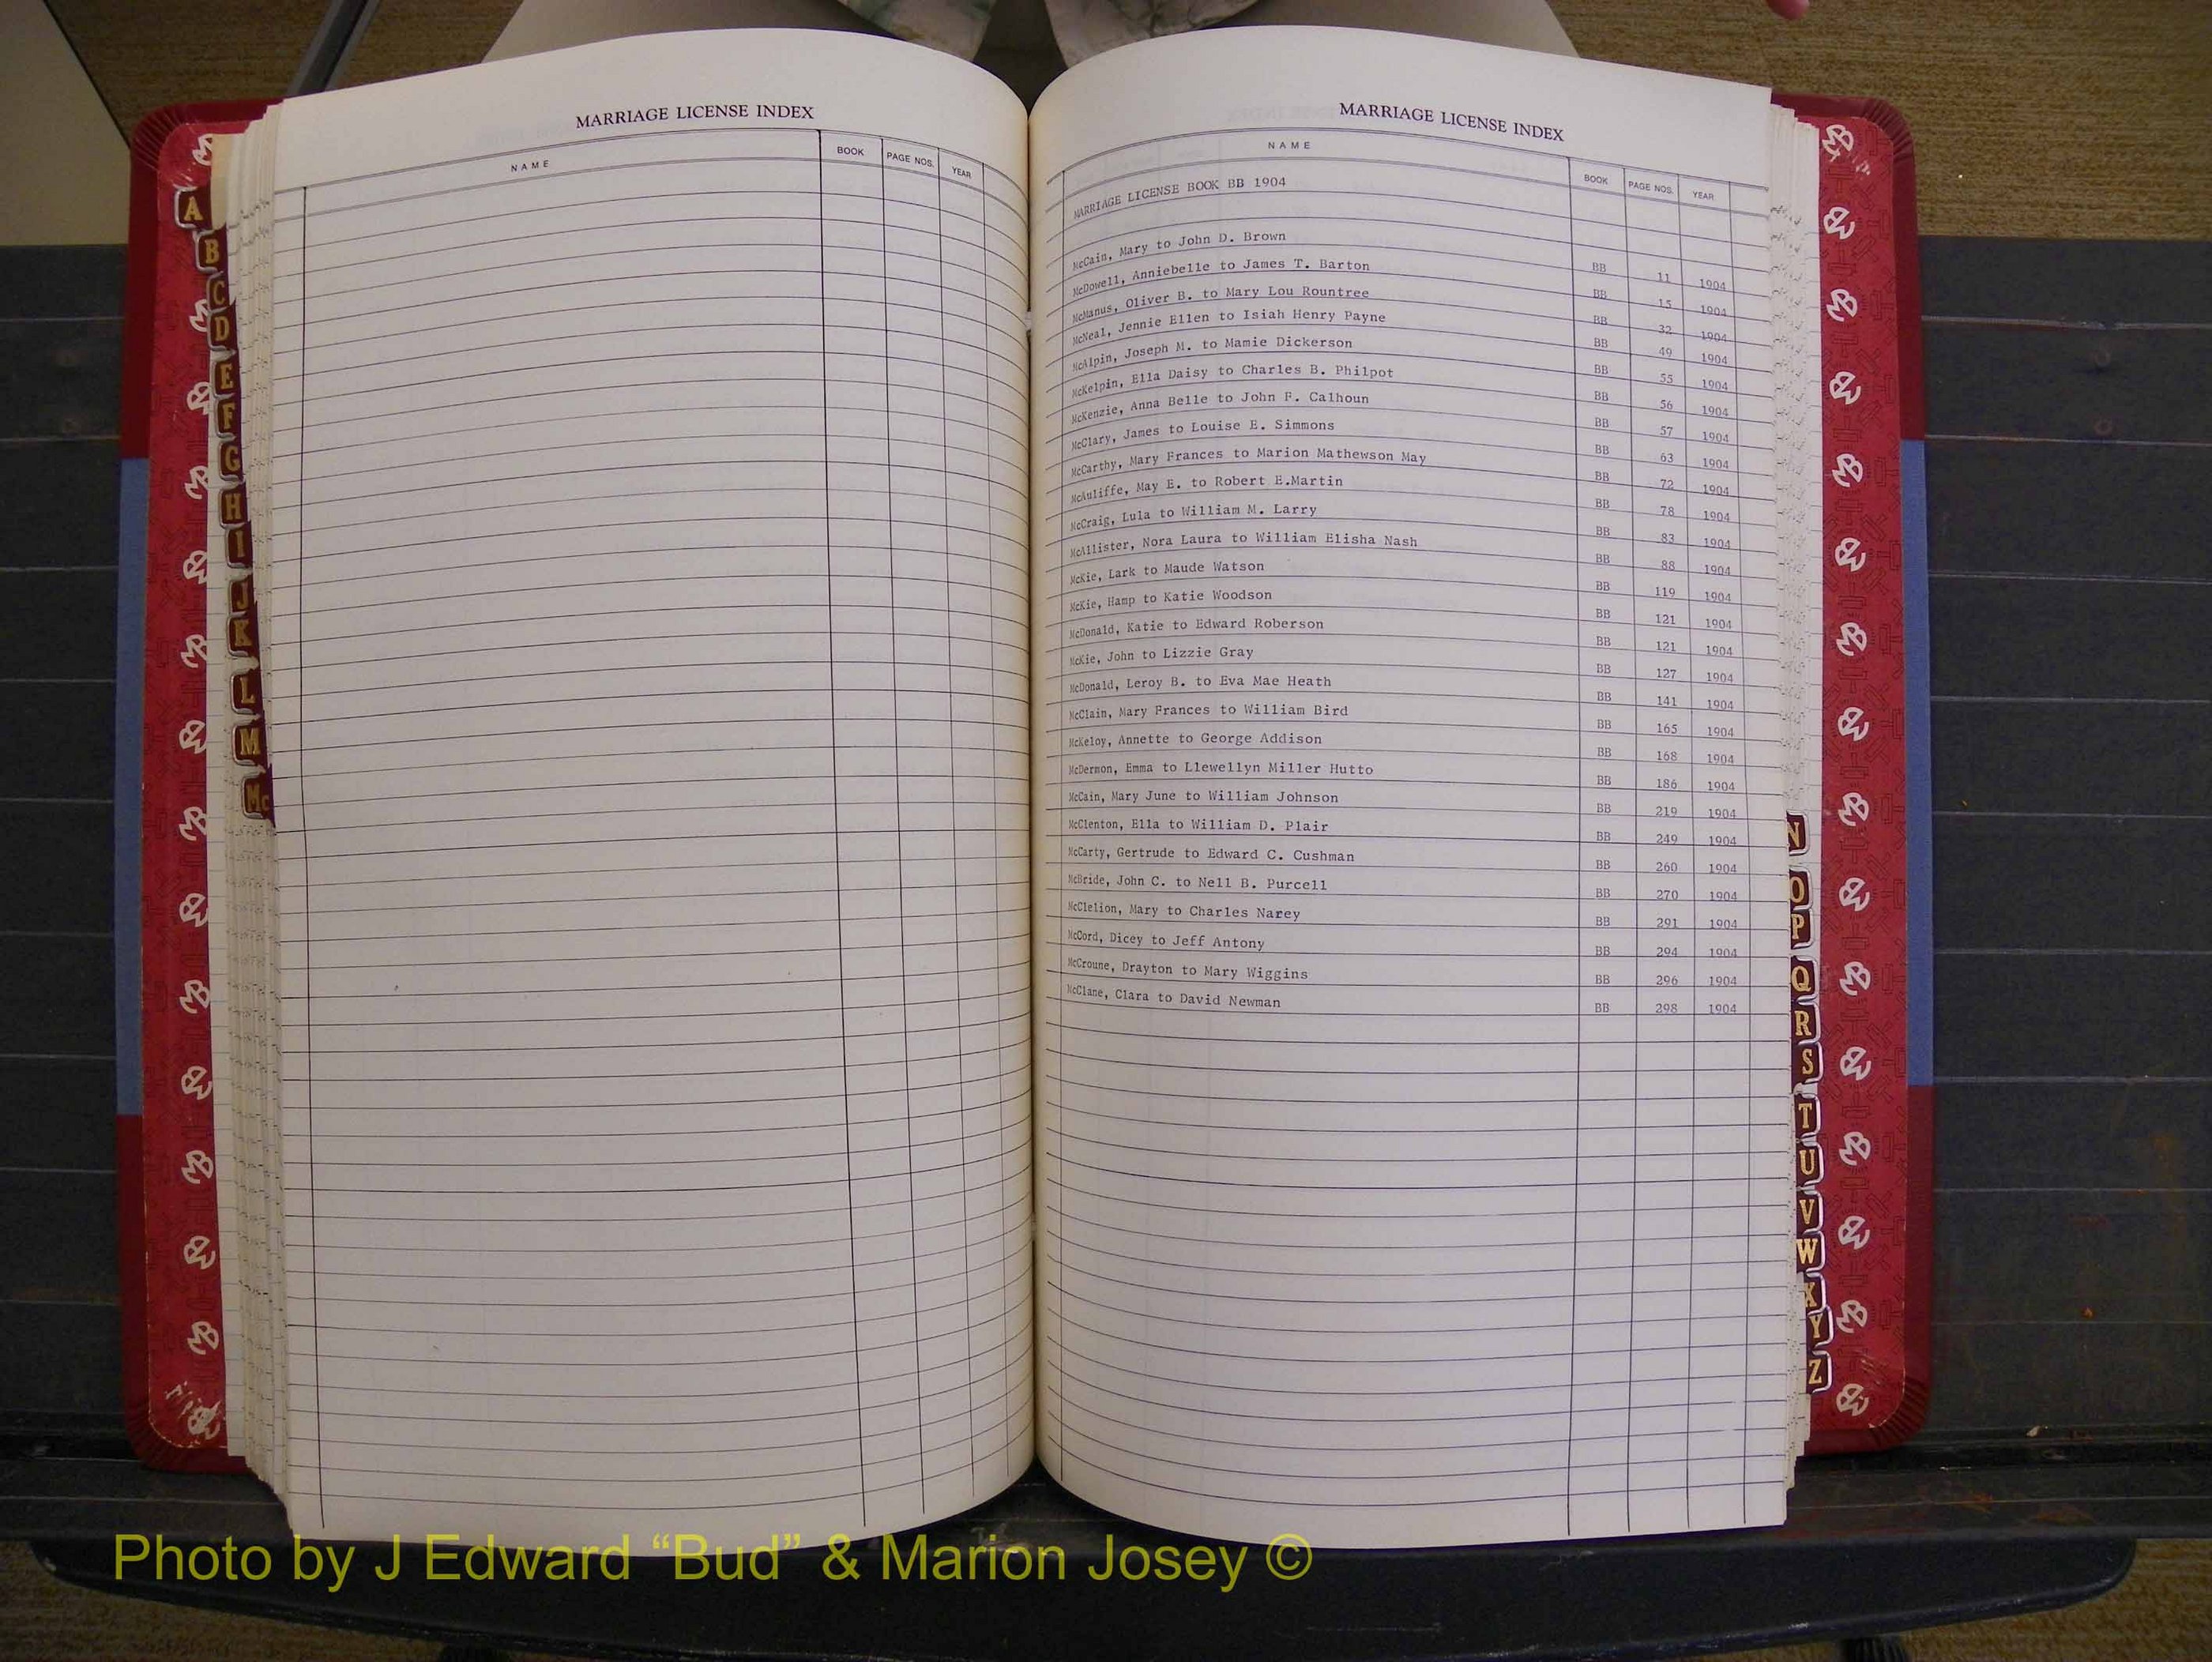 MARRIAGE LICENSE INDEX
NAME BOOK PAGE NOS. YEAR
A
B
C
D
E
F
G
H
I
J
K
L
M
Mc
MARRIAGE LICENSE INDEX
NAME BOOK PAGE NOS. YEAR
MARRIAGE LICENSE BOOK BB 1904
McCain, Mary to John D. Brown BB 11 1904
McDowell, Anniebelle to James T. Barton BB 15 1904
McManus, Oliver B. to Mary Lou Rountree BB 32 1904
McNeal, Jennie Ellen to Isiah Henry Payne BB 49 1904
McAlpin, Joseph M. to Mamie Dickerson BB 55 1904
McKelpin, Ella Daisy to Charles B. Philpot BB 56 1904
McKenzie, Anna Belle to John F. Calhoun BB 57 1904
McClary, James to Louise E. Simmons BB 63 1904
McCarthy, Mary Frances to Marion Mathewson May BB 72 1904
McAuliffe, May E. to Robert E.Martin BB 78 1904
McCraig, Lula to William M. Larry BB 83 1904
McAllister, Nora Laura to William Elisha Nash BB 88 1904
McKie, Lark to Maude Watson BB 119 1904
McKie, Hamp to Katie Woodson BB 121 1904
McDonald, Katie to Edward Roberson BB 121 1904
McKie, John to Lizzie Gray BB 127 1904
McDonald, Leroy B. to Eva Mae Heath BB 141 1904
McClain, Mary Frances to William Bird BB 165 1904
McKeloy, Annette to George Addison BB 168 1904
McDermon, Emma to Llewellyn Miller Hutto BB 186 1904
McCain, Mary June to William Johnson BB 219 1904
McClenton, Ella to William D. Plair BB 249 1904
McCarty, Gertrude to Edward C. Cushman BB 260 1904
McBride, John C. to Nell B. Purcell BB 270 1904
McClelion, Mary to Charles Narey BB 291 1904
McCord, Dicey to Jeff Antony BB 294 1904
McCroune, Drayton to Mary Wiggins BB 296 1904
McClane, Clara to David Newman BB 298 1904
N
O
P
Q
R
S
T
U
V
W
X
Y
Z
Photo by J Edward “Bud” & Marion Josey ©